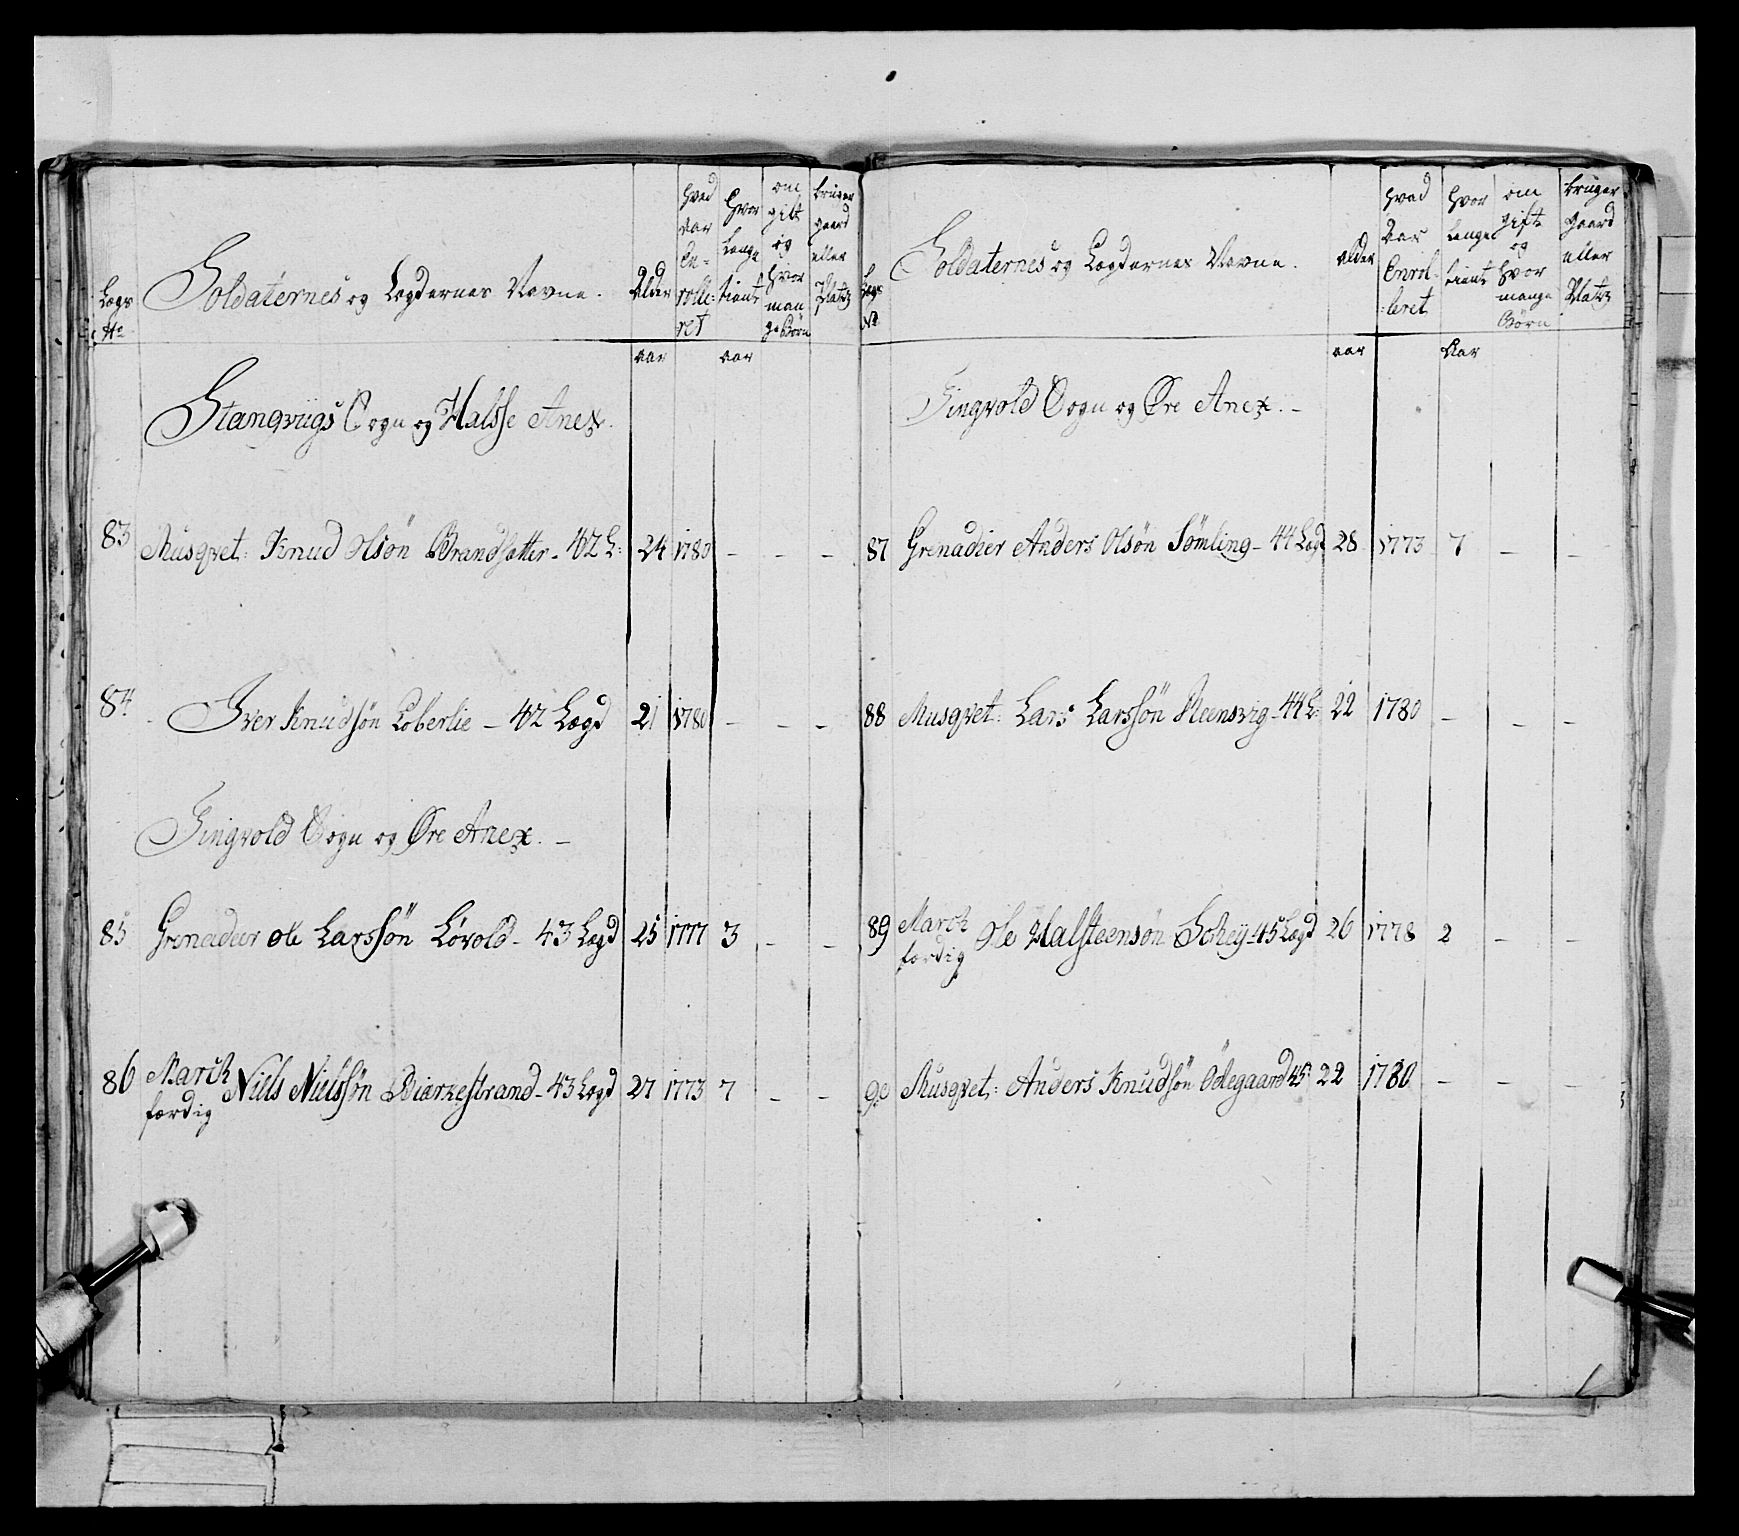 Legs No
Soldaternes og Legdernes Navne.
Alder
hvad aar Enrolleret
hvor lenge tient
om gift og hvor mange Børn
bruger gaard eller Platz
aar aar
Stangviigs Sogn og Halsse Anex.
83 Musqvet: Knud Olsön Brandsætter - 42 L: 24 1780 - - -
84 Iver Knudsön Loberlie - 42 Lægd 21 1780 - - -
Tingvold Sogn og Øre Anex. -
85 Grenadeer Ole Larssön Lövold - 43 Lægd 25 1777 3 - -
86 March færdig Niels Nielssön Biærkestrand - 43 Legd 27 1773 7 - -
Legs No
Soldaternes og Legdernes Navne.
alder
hvad Aar Enrolleret
hvor lenge tient
om gift og hvor mange Börn
bruger gaard eller Platz
aar Aar
Tingvold Sogn og Øre Anex. -
87 Grenadeer Anders Olsön Sömling - 44 Legd 28 1773 7 - -
88 Musqvet: Lars Larssön Reensvig - 44 L: 22 1780 - - -
89 March færdig Ole Halsteensön - 45 Lægd 26 1778 2 - -
90 Musqvet: Anders Knudsön Ödegaard 45 22 1780 - - -